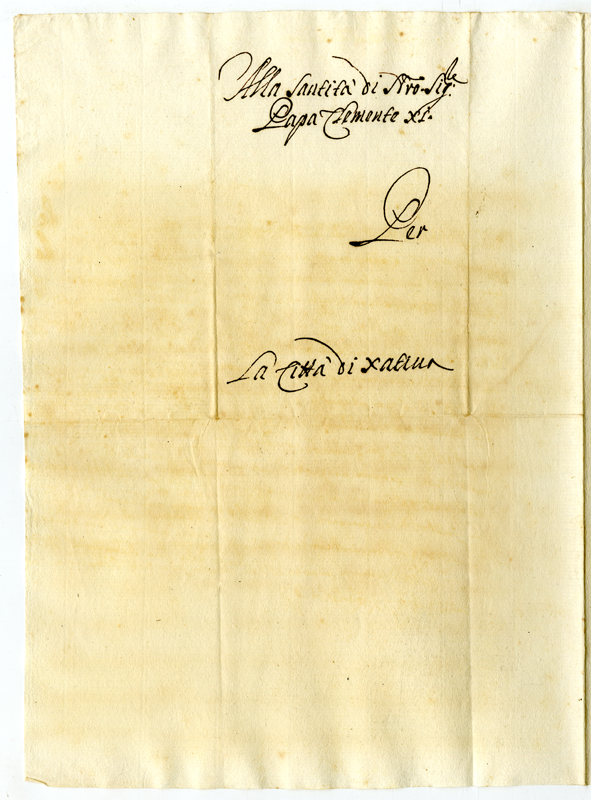 Alla Santità di Nro Sig:re
Papa Clemente XI.
Per
La Città di Xativa